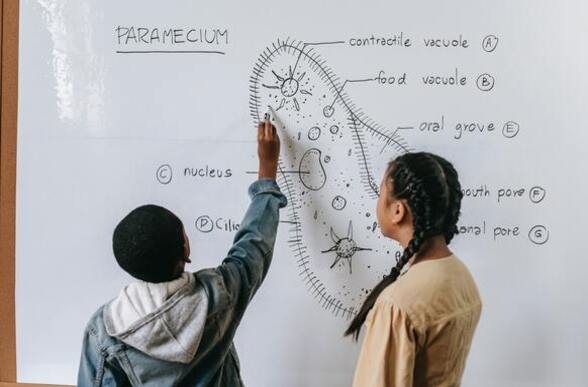 PARAMECIUM
contractile vacuole A
food vacuole B
oral grove E
C nucleus
pore F
D Cili
pore G